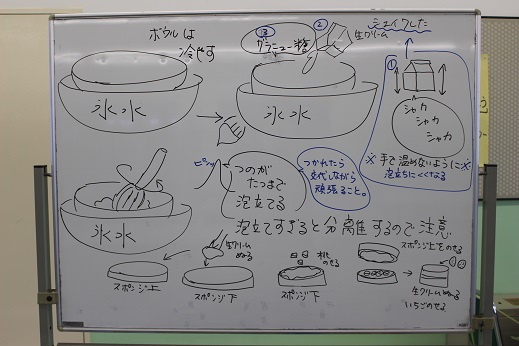 ボウルは
冷やす
氷水
③
グラニュー糖
②
生クリーム
氷水
シェイクした
①
シャカ
シャカ
シャカ
※手で温めないように※
泡立ちにくくなる
氷水
ピンッ
つのが
たつまで
泡立てる
つかれたら
交代しながら
頑張ること。
泡立てすぎると分離するので注意
スポンジ上
生クリーム
ぬる
スポンジ下
桃
のせる
スポンジ下
スポンジ上をのせる
生クリームぬる
いちごのせる